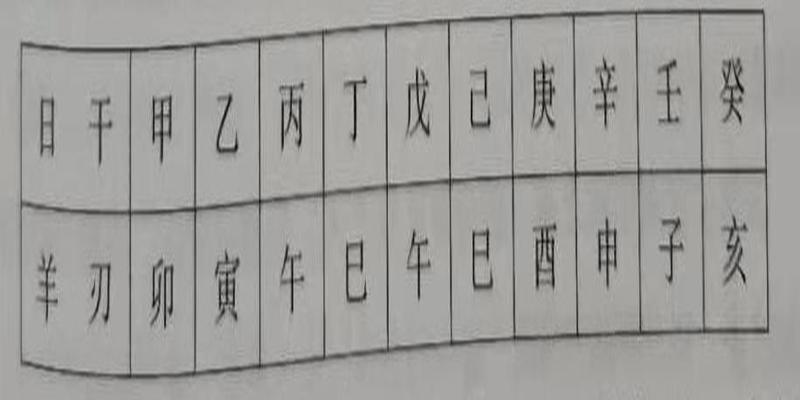 日干 甲 乙 丙 丁 戊 己 庚 辛 壬 癸
羊刃 卯 寅 午 巳 午 巳 酉 申 子 亥